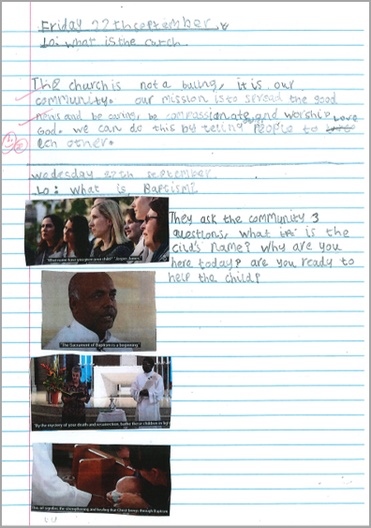 Friday 22th september
Lo: what is the curch
The church is not a builing, it is our
community. our mission is to spread the good
news and be caring, be compassionate and worship
God. we can do this by telling people to love
ech other.
wedesday 27th september
Lo: What is Baptism?
They ask the community 3
questions, what is the
cild's name? Why are you
here today? are you ready to
help the child?
"The Sacrament of Baptism is a beginning"
"By the mystery of your death and resurrection, bathe these children in light